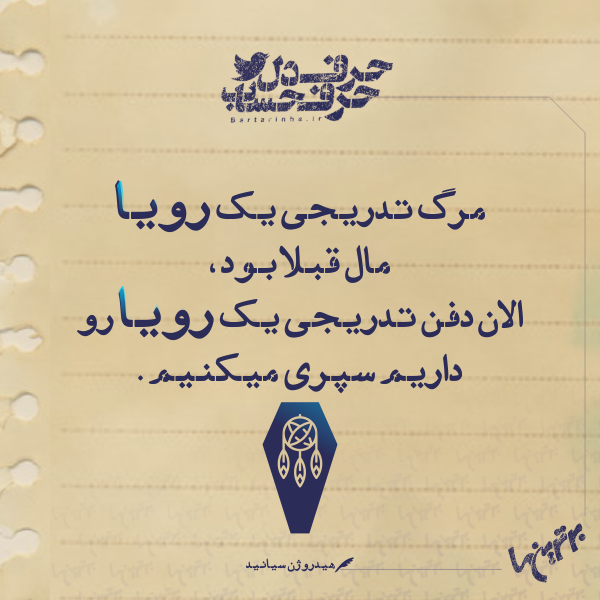 حرف دل
حرف حساب
Bartarinha.ir
مرگ تدریجی یک رویا
مال قبلا بود،
الان دفن تدریجی یک رویا رو
داریم سپری میکنیم.
هیدروژن سیانید
برترینها